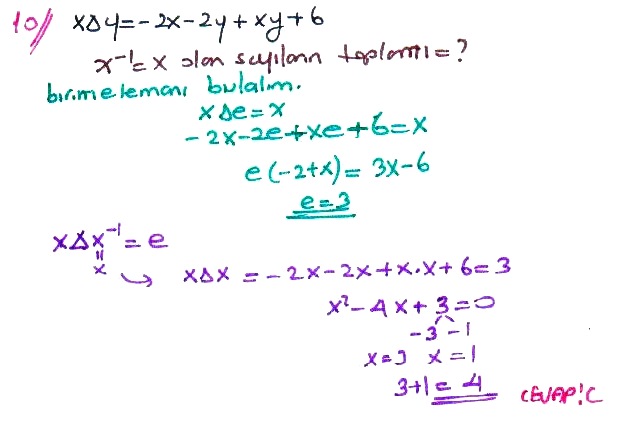 10// xΔy=-2x-2y+xy+6
x⁻¹=x olan sayıların toplamı=?
birim elemanı bulalım.
xΔe=x
-2x-2e+xe+6=x
e(-2+x)=3x-6
e=3
xΔx⁻¹=e
x
xΔx=-2x-2x+x.x+6=3
x²-4x+3=0
-3 -1
x=3 x=1
3+1=4 CEVAP:C